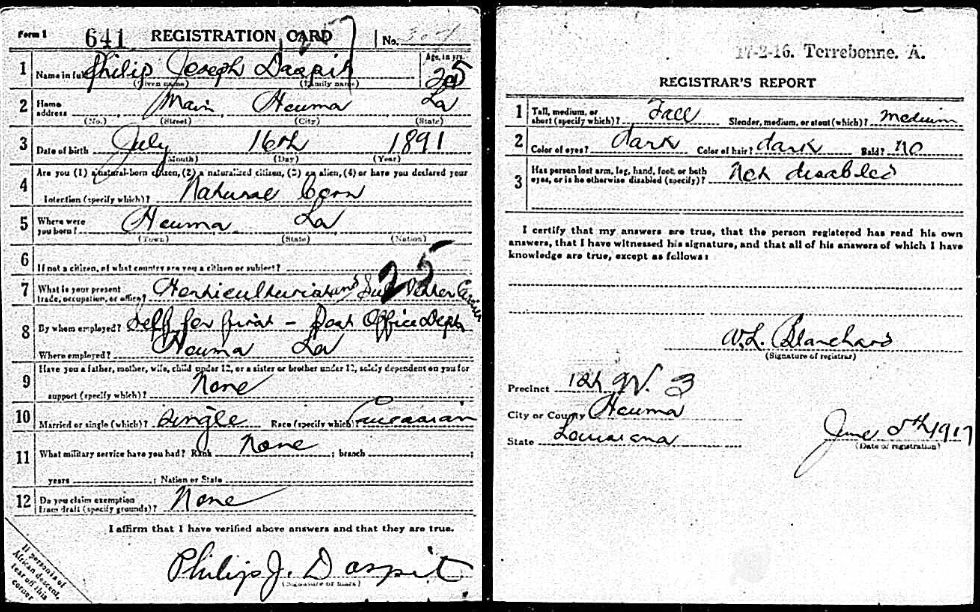 Form 1 641 REGISTRATION CARD No.
1 Name in full Philip Joseph Daspit Age, in yrs. 25
(Given name) (Family name)
2 Home address Main Houma La
(No.) (Street) (City) (State)
3 Date of birth July 16th 1891
(Month) (Day) (Year)
4 Are you (1) a natural-born citizen, (2) a naturalized citizen, (3) an alien, (4) or have you declared your
intention (specify which)? Natural Born
5 Where were you born? Houma La
(Town) (State) (Nation)
6 If not a citizen, of what country are you a citizen or subject?
25
7 What is your present trade, occupation, or office? Horticulturist and Sub Letter Carrier
8 By whom employed? Self for first - Post Office Dept
Where employed? Houma La
9 Have you a father, mother, wife, child under 12, or a sister or brother under 12, solely dependent on you for
support (specify which)? None
10 Married or single (which)? Single Race (specify which)? Caucasian
11 What military service have you had? Rank None ; branch ;
years ; Nation or State
12 Do you claim exemption from draft (specify grounds)? None
I affirm that I have verified above answers and that they are true.
Philip J. Daspit
(Signature or mark)
If persons of
African descent,
tear off this
corner
17-2-16. Terrebonne. A.
REGISTRAR'S REPORT
1 Tall, medium, or short (specify which)? Tall Slender, medium, or stout (which)? medium
2 Color of eyes? dark Color of hair? dark Bald? No
3 Has person lost arm, leg, hand, foot, or both
eyes, or is he otherwise disabled (specify)? Not disabled
I certify that my answers are true, that the person registered has read his own
answers, that I have witnessed his signature, and that all of his answers of which I have
knowledge are true, except as follows:
W.L. Blanchard
(Signature of registrar)
Precinct 1st W. 3
City or County Houma
State Louisiana
June 5th 1917
(Date of registration)